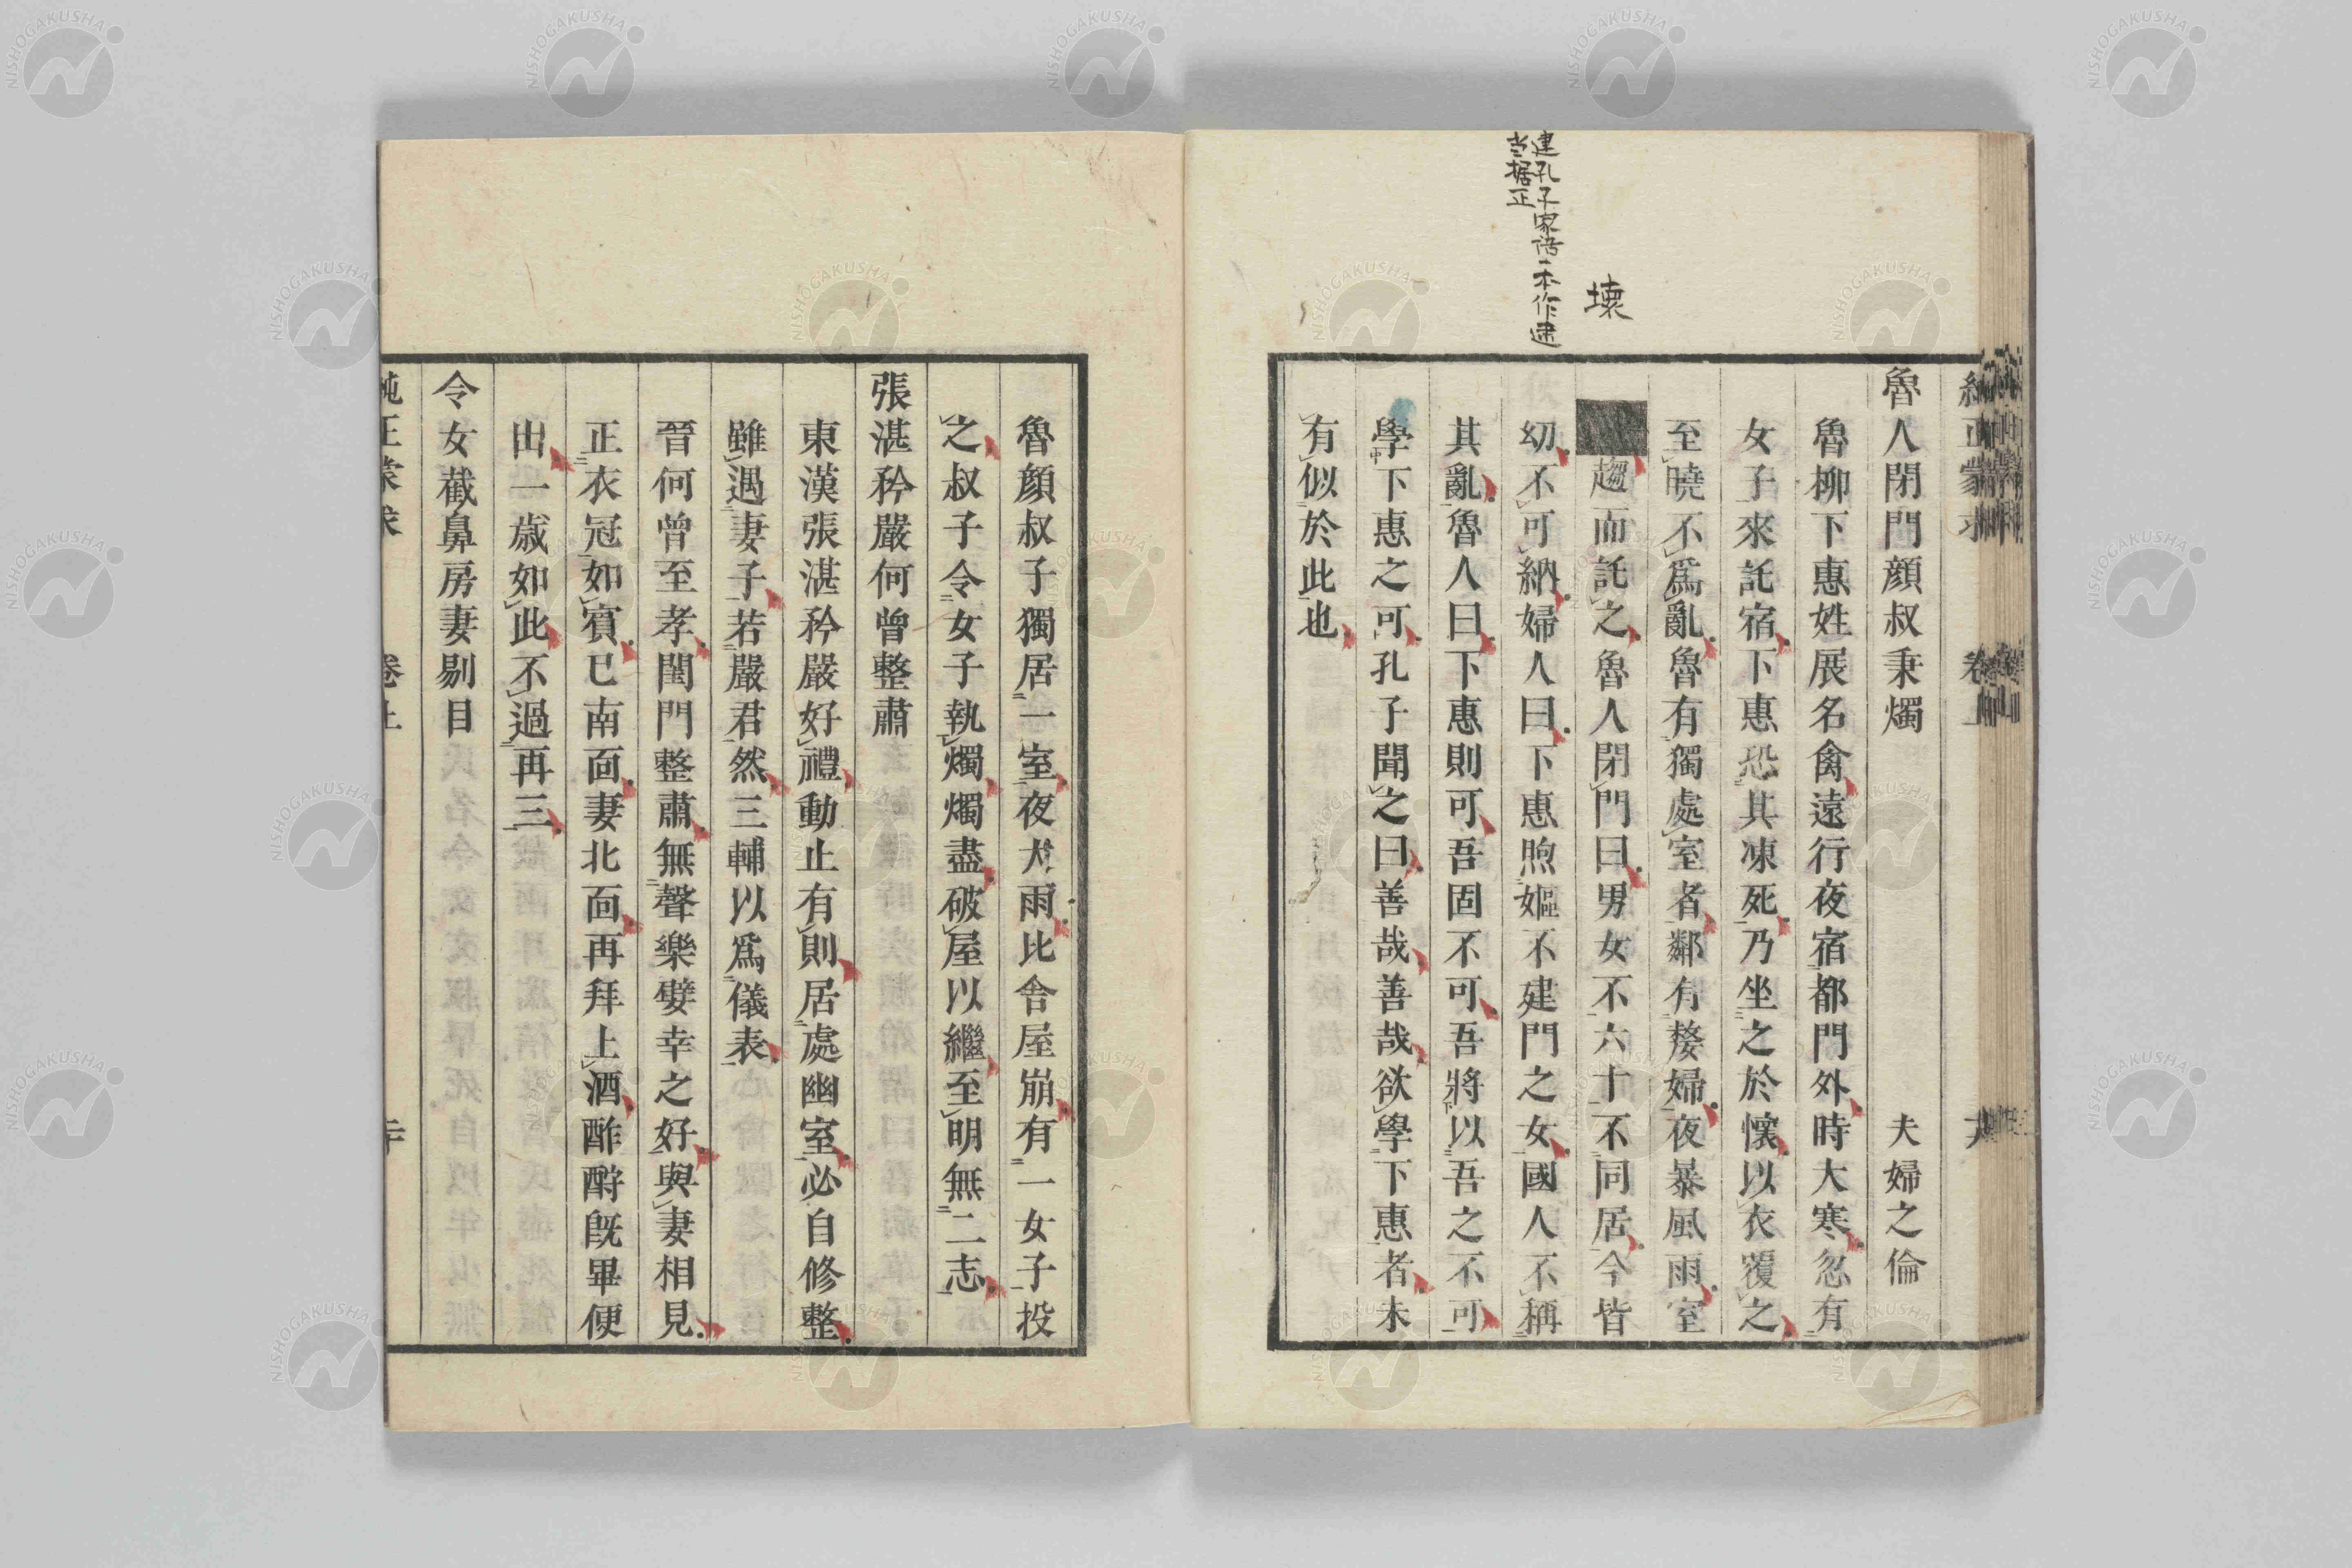 壊
建孔子家語一本作逮
当据正
純正蒙求 卷上
魯人閉門顔叔秉燭 夫婦之倫
魯柳下惠姓展名禽遠行夜宿都門外時大寒忽有
女子來託宿下惠恐其凍死乃坐之於懷以衣覆之
至曉不爲亂魯有獨處室者鄰有嫠婦夜暴風雨室
趨而託之魯人閉門曰男女不六十不同居今皆
幼不可納婦人曰下惠煦嫗不建門之女國人不稱
其亂魯人曰下惠則可吾固不可吾將以吾之不可
學下惠之可孔子聞之曰善哉善哉欲學下惠者未
有似於此也
魯顔叔子獨居一室夜大雨比舍屋崩有一女子投
之叔子令女子執燭燭盡破屋以繼至明無二志
張湛矜嚴何曾整肅
東漢張湛矜嚴好禮動止有則居處幽室必自修整
雖遇妻子若嚴君然三輔以爲儀表
晉何曾至孝閨門整肅無聲樂嬖幸之好與妻相見
正衣冠如賓已南面妻北面再拜上酒酢酹旣畢便
出一歲如此不過再三
令女截鼻房妻剔目
純正蒙求 卷上
NISHOGAKUSHA